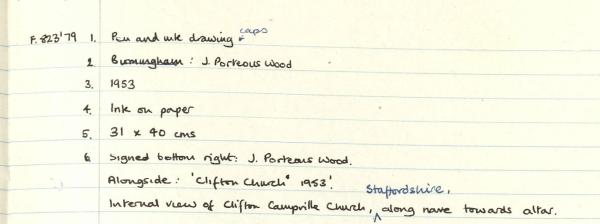 caps
F.823'79 1. Pen and ink drawing
2. Birmingham: J. Porteous Wood
3. 1953
4. Ink on paper
5. 31 x 40 cms
6. Signed bottom right: J. Porteous Wood.
Alongside: 'Clifton Church" 1953'.
Staffordshire,
Internal view of Clifton Campville Church, along nave towards altar.